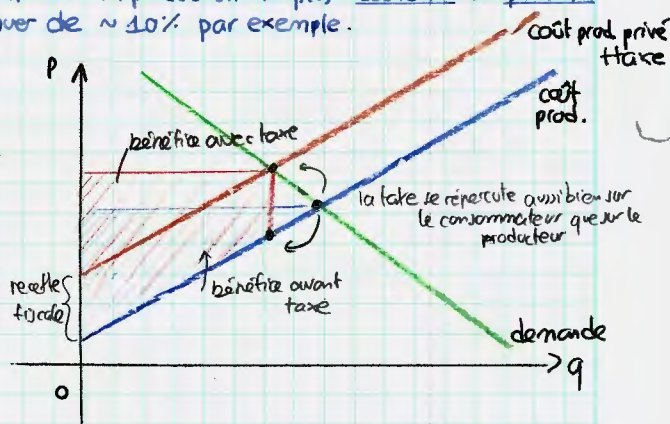 uer de ~ 10% par exemple.
P
coût prod. privé
+taxe
coût
prod.
bénéfice avec taxe
la taxe se répercute aussi bien sur
le consommateur que sur le
producteur
recette
fiscale
bénéfice avant
taxe
demande
q
0